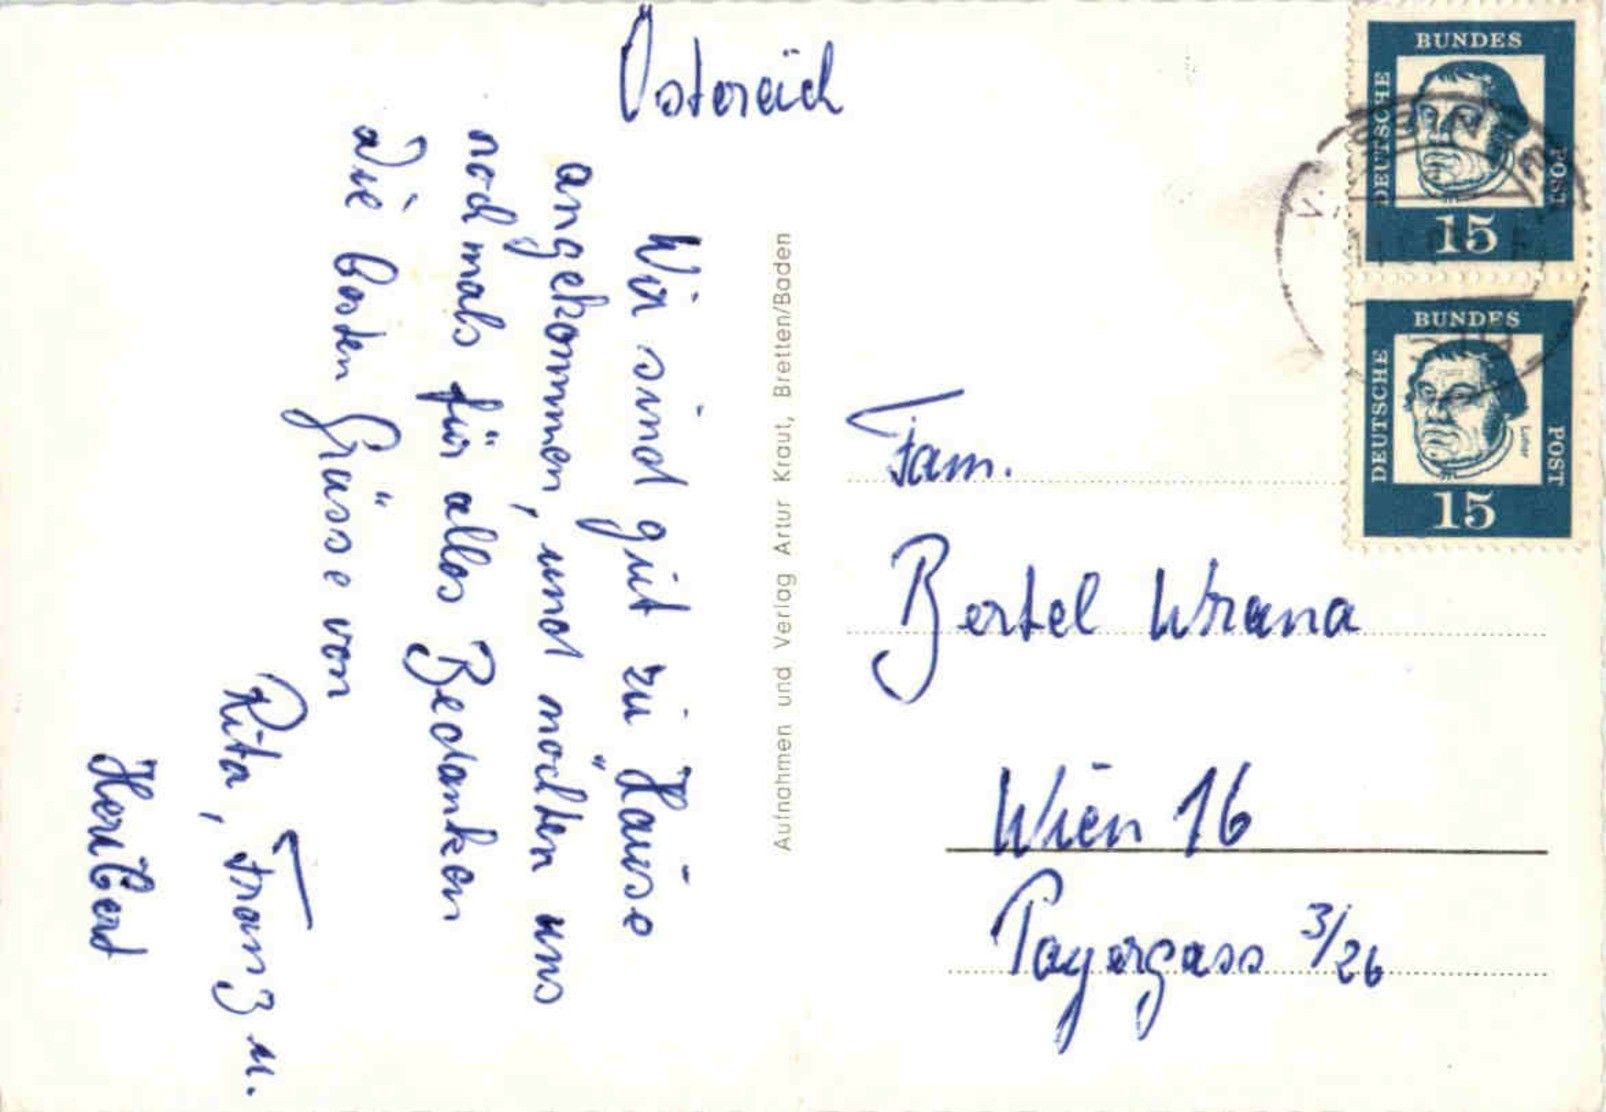 Östereich
Wir sind gut zu Hause
angekommen, und möchten uns
nochmals für alles Bedanken
die besten Grüsse von
Rita, Franz u.
Heribert
Aufnahmen und Verlag Artur Kraut, Bretten/Baden
Fam.
Bertel Wrana
Wien 16
Payergass 3/26
DEUTSCHE BUNDES POST
15
DEUTSCHE BUNDES POST
Luther
15